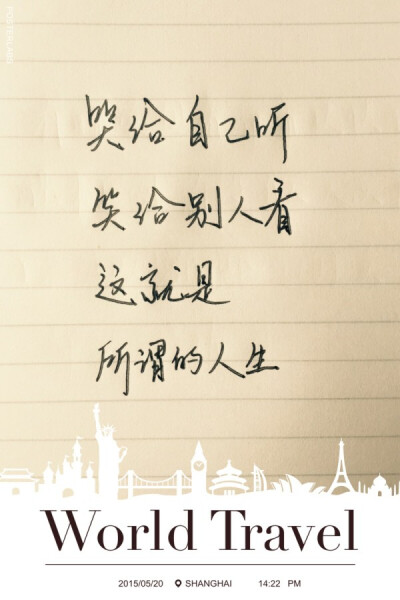 哭给自己听
笑给别人看
这就是
所谓的人生
World Travel
2015/05/20 SHANGHAI 14:22 PM